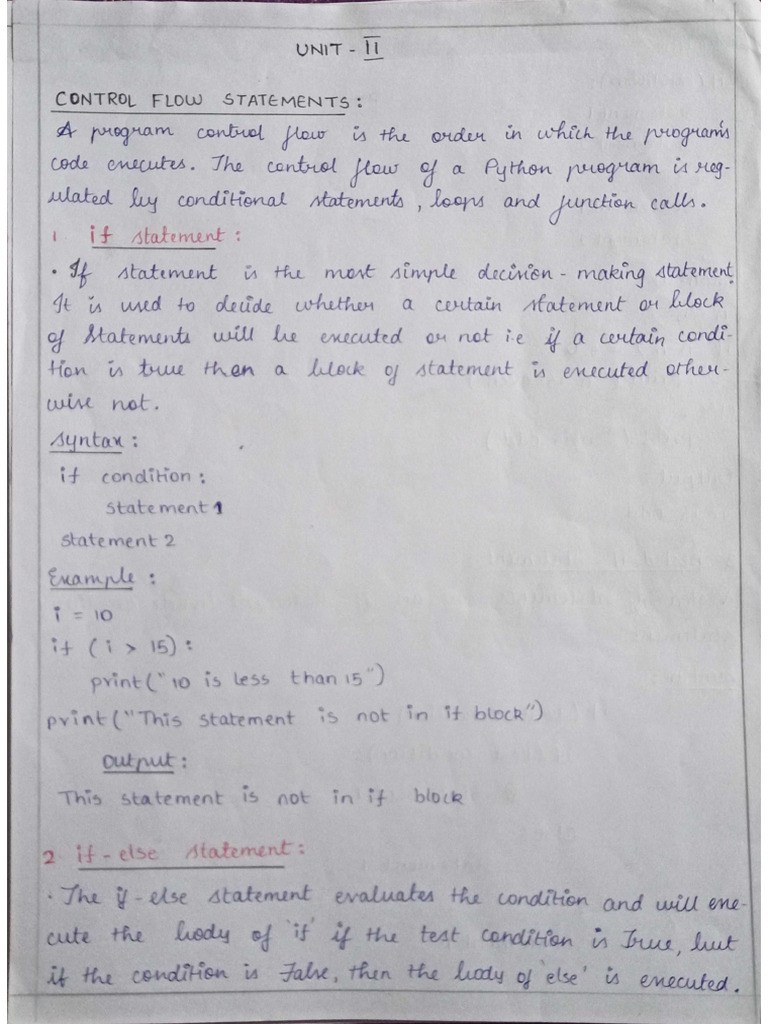 UNIT - II
CONTROL FLOW STATEMENTS :
A program control flow is the order in which the program's
code executes. The control flow of a Python program is reg-
ulated by conditional statements, loops and function calls.
1 if statement :
• If statement is the most simple decision - making statement.
It is used to decide whether a certain statement or block
of statements will be executed or not i.e if a certain condi-
tion is true then a block of statement is executed other-
wise not.
Syntax :
if condition :
statement 1
statement 2
Example :
i = 10
if ( i > 15) :
print("10 is less than 15")
print("This statement is not in if block")
Output :
This statement is not in if block
2 if - else statement :
• The if - else statement evaluates the condition and will exe-
cute the body of 'if' if the test condition is True, but
if the condition is False, then the body of 'else' is executed.